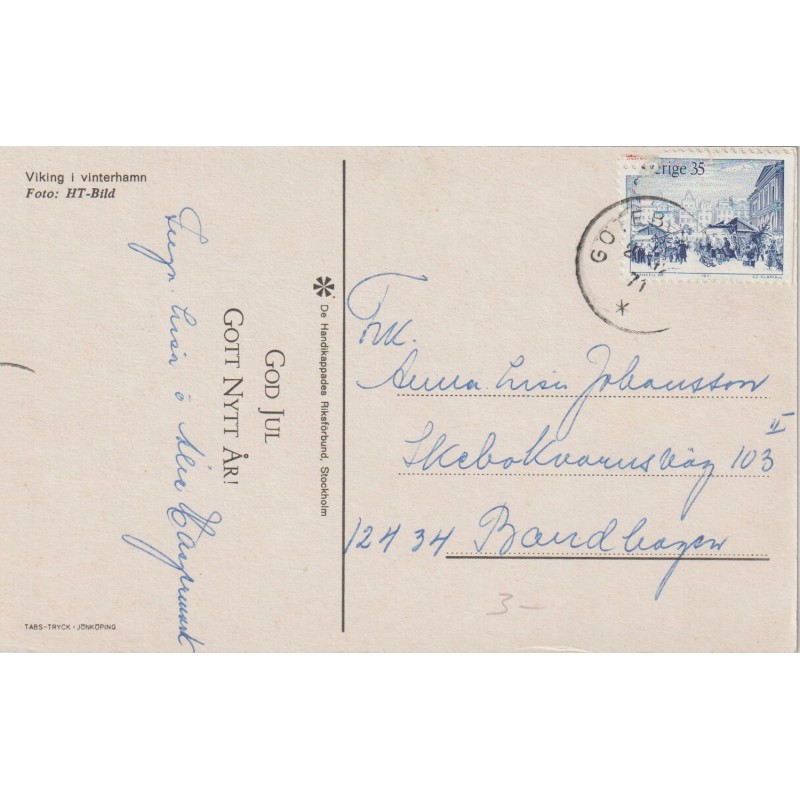 Viking i vinterhamn
Foto: HT-Bild
GOD JUL
GOTT NYTT ÅR!
Lisa o
De Handikappades Riksförbund, Stockholm
TABS-TRYCK - JÖNKÖPING
erige 35
GÖTEB
71
Frk.
Anna-Lisa Johansson
Skebokvarnsväg 103 II
12434 Bandhagen
3-